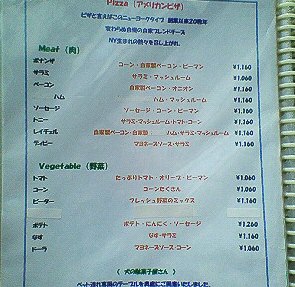 Pizza（アメリカンピザ）
ピザと言えばこのニューヨークタイプ 創業以来20数年
変わらぬ自慢の自家ブレンドチーズ
NY生まれの熱々を召し上がれ
Meat（肉）
ボナンザ コーン・自家製ベーコン・ピーマン ¥1,160
サラミ サラミ・マッシュルーム ¥1,060
ベーコン 自家製ベーコン・オニオン ¥1,160
ハム ハム・マッシュルーム ¥1,160
ソーセージ ソーセージ・コーン・ピーマン ¥1,160
トニー サラミ・マッシュルーム・トマト・コーン ¥1,160
レイチェル 自家製ベーコン・自家製 ハム・サラミ・マッシュルーム ¥1,160
デイビー マヨネーズソース・サラミ ¥1,160
Vegetable（野菜）
トマト たっぷりトマト・オリーブ・ピーマン ¥1,060
コーン コーンたくさん ¥1,060
ピーター フレッシュ野菜のミックス ¥1,160
ポテト ポテト・にんにく・ソーセージ ¥1,260
なす なす・サラミ ¥1,160
ドーラ マヨネーズソース・コーン ¥1,060
（犬の駄菓子屋さん）
ペット連れ専用のテーブルを奥庭にご用意いたしました。